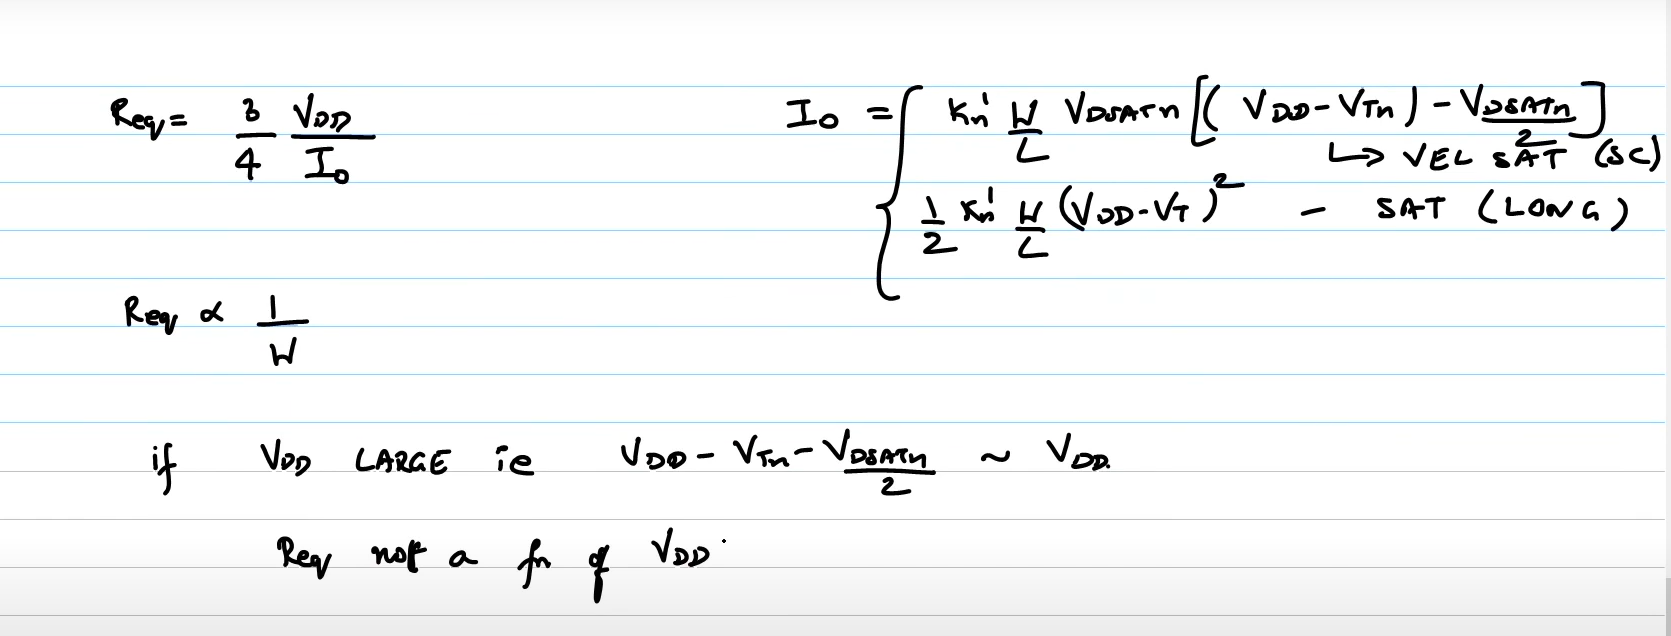 Req = 3/4 VDD/I0
I0 = { Kn' W/L VDSATn [(VDD - VTn) - VDSATn/2]
↳ VEL SAT (SC)
1/2 Kn' W/L (VDD - VT)² - SAT (LONG)
Req ∝ 1/W
if VDD LARGE ie VDD - VTn - VDSATn/2 ~ VDD.
Req not a fn of VDD.